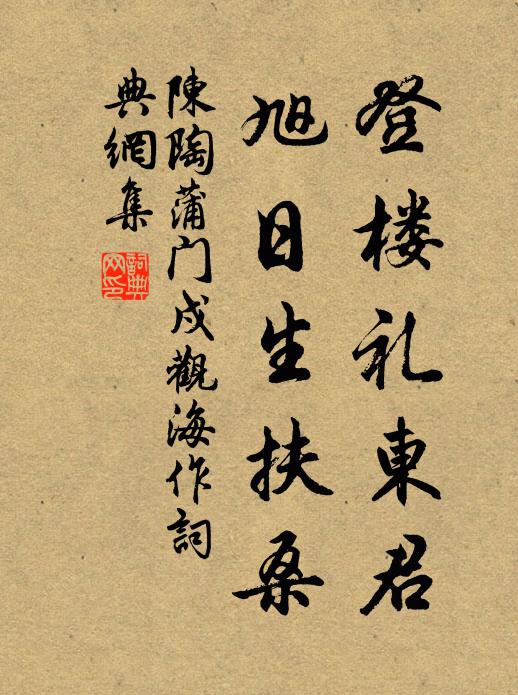 登楼礼東君
旭日生扶桑
陳陶蒲门戍觀海作詞
典網集
詞典
网印